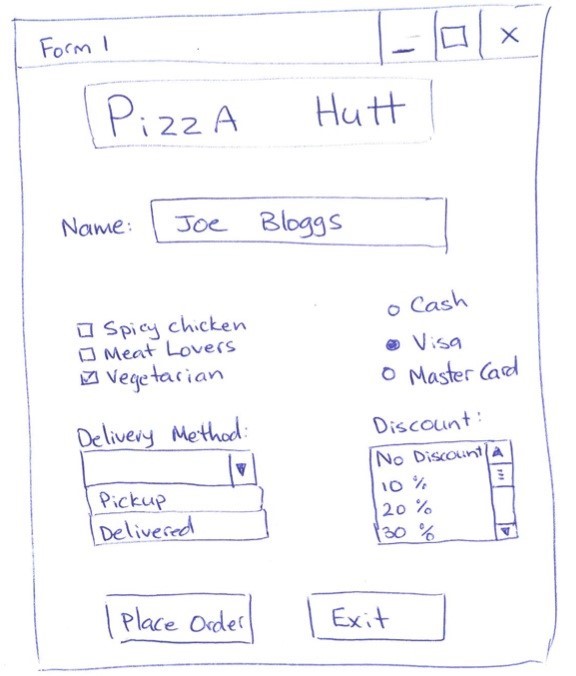 Form 1
PizzA Hutt
Name: Joe Bloggs
Spicy chicken
Meat Lovers
Vegetarian
Cash
Visa
Master Card
Delivery Method:
Pickup
Delivered
Discount:
No Discount
10 %
20 %
30 %
Place Order
Exit